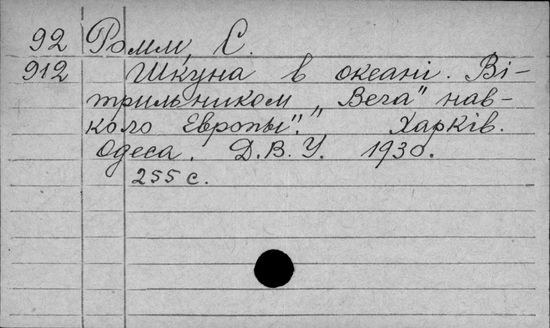 92 Ромм, С.
912 Шкуна в океані. Ві-
трильником „Вега" нав-
коло Европы". Харків.
Одеса. Д.В.У. 1930.
255 с.